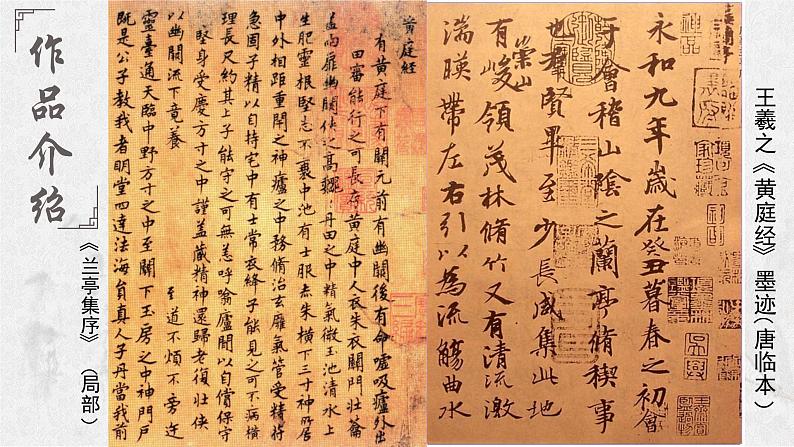 作品介绍
王羲之《黄庭经》墨迹（唐临本）
永和九年歲在癸丑暮春之初會
于會稽山陰之蘭亭脩稧事
也羣賢畢至少長咸集此地
有崇山峻領茂林脩竹又有清流激
湍暎帶左右引以為流觴曲水
黃庭經
有黃庭下有關元前有幽闕後有命噓吸廬外出
田審能行之可長存黃庭中人衣朱衣關門壯籥
盖兩扉幽闕俠之高巍丹田之中精氣微玉池清水上
生肥靈根堅志不衰中池有士服赤朱橫下三寸神所
中外相距重閇之神廬之中務脩治玄膺氣管受精符
急固子精以自持宅中有士常衣絳子能見之可不病橫
理長尺約其上子能守之可無恙呼噏廬間以自償保守
堅身受慶方寸之中謹盖藏精神還歸老復壯俠
以幽闕流下竟養 至道不煩不旁迕
靈臺通天臨中野方寸之中至關下玉房之中神門戶
既是公子教我者明堂四達法海員真人子丹當我前
《兰亭集序》（局部）